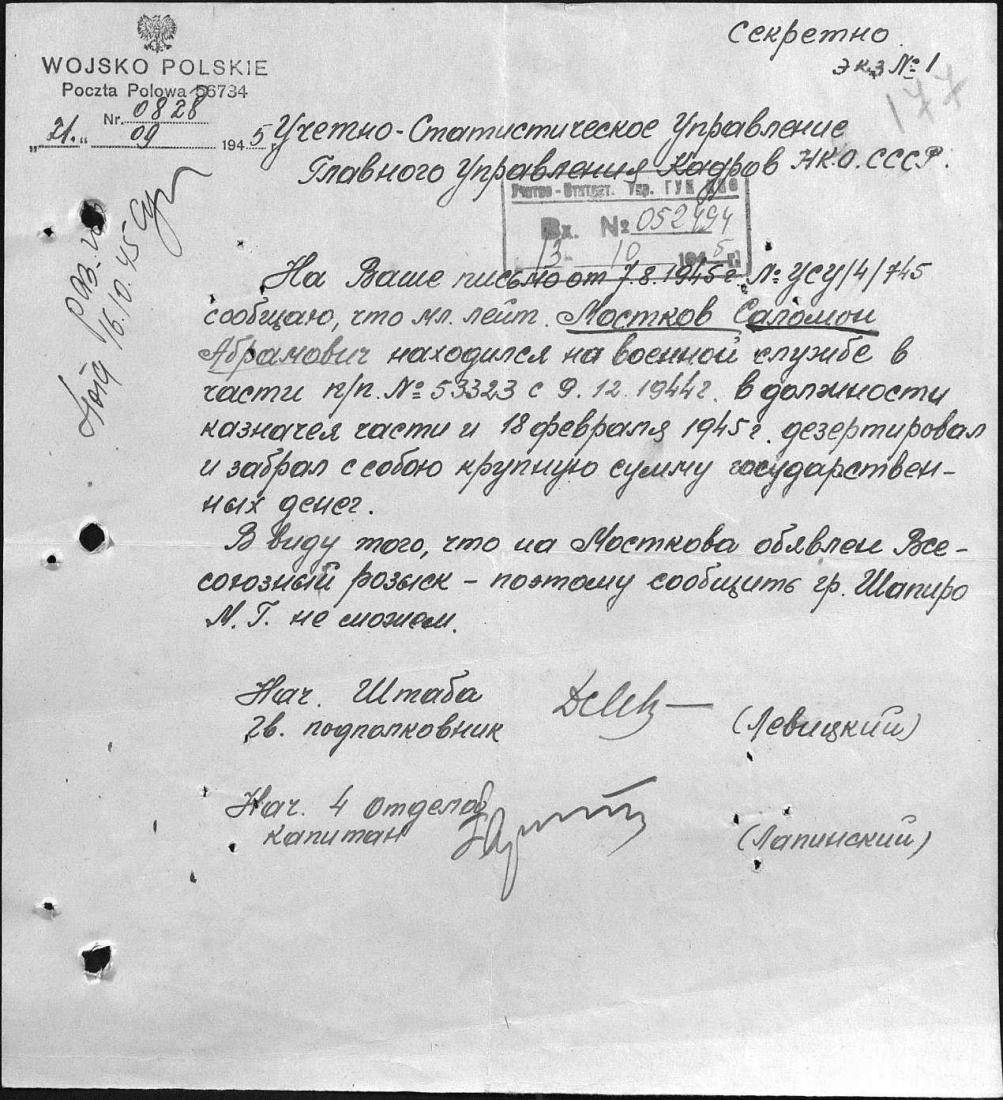 Секретно
экз № 1
177
WOJSKO POLSKIE
Poczta Polowa 56734
Nr. 0828
„21.“ 09 1945 г.
Учетно-Статистическое Управление
Главного Управления Кадров НКО. СССР.
Учетно-Статист. Упр. ГУК НКО
Вх. № 052494
13 10 1945 г.
16.10.45
На Ваше письмо от 7.8.1945 г. № УСУ/4/745
сообщаю, что мл. лейт. Мостков Саломон
Абрамович находился на военной службе в
части п/п. № 53323 с 9.12.1944 г. в должности
казначея части и 18 февраля 1945 г. дезертировал
и забрал с собою крупную сумму государствен-
ных денег.
В виду того, что на Мосткова обявлен Все-
союзный розыск – поэтому сообщить гр. Шапиро
М. Г. не можем.
Нач. Штаба
гв. подполковник
(Левицкий)
Нач. 4 отдела
капитан
(Лапинский)